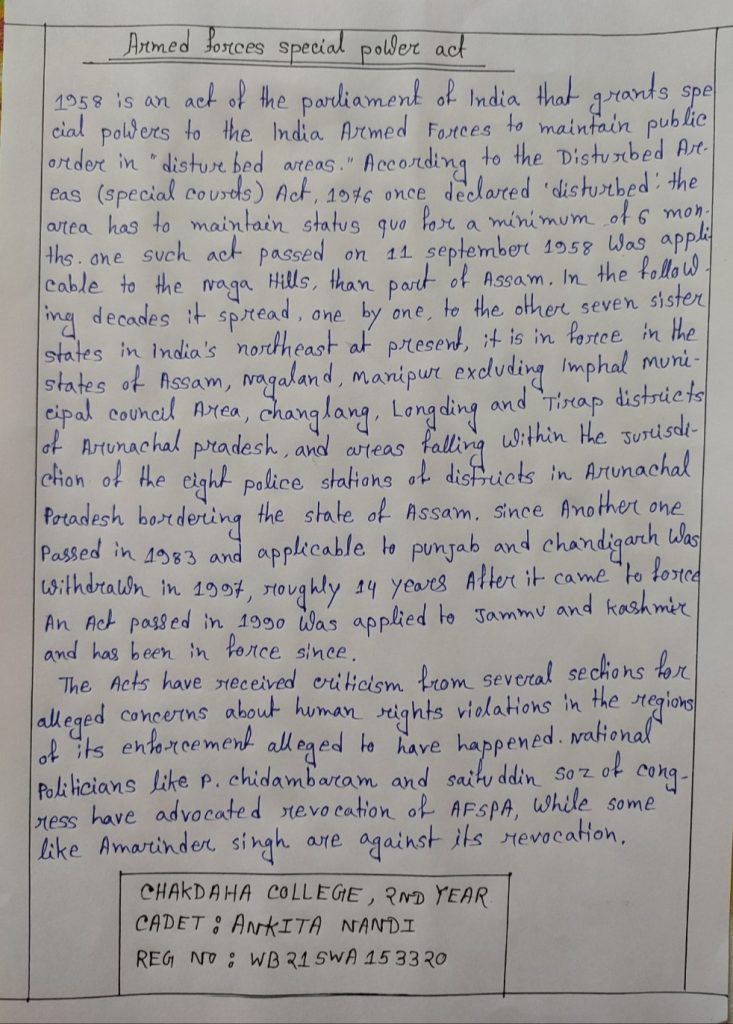 Armed forces special power act
1958 is an act of the parliament of India that grants spe
cial powers to the India Armed Forces to maintain public
order in "disturbed areas." According to the Disturbed Ar-
eas (special courts) Act, 1976 once declared 'disturbed', the
area has to maintain status quo for a minimum of 6 mon-
ths. one such act passed on 11 september 1958 was appli
cable to the naga Hills, than part of Assam. In the follow-
ing decades it spread, one by one, to the other seven sister
states in India's northeast at present, it is in force in the
states of Assam, nagaland, manipur excluding Imphal muni-
cipal council Area, changlang, Longding and Tirap districts
of Arunachal pradesh, and areas falling within the Jurisdi-
ction of the eight police stations of districts in Arunachal
Pradesh bordering the state of Assam. since Another one
Passed in 1983 and applicable to punjab and chandigarh was
withdrawn in 1997, roughly 14 years After it came to force
An Act passed in 1990 was applied to Jammu and Kashmir
and has been in force since.
The Acts have received criticism from several sections for
alleged concerns about human rights violations in the regions
of its enforcement alleged to have happened. national
Politicians like P. chidambaram and saifuddin soz of cong-
ress have advocated revocation of AFSPA, while some
like Amarinder singh are against its revocation.
CHAKDAHA COLLEGE, 2ND YEAR
CADET : ANKITA NANDI
REG NO : WB21SWA153320